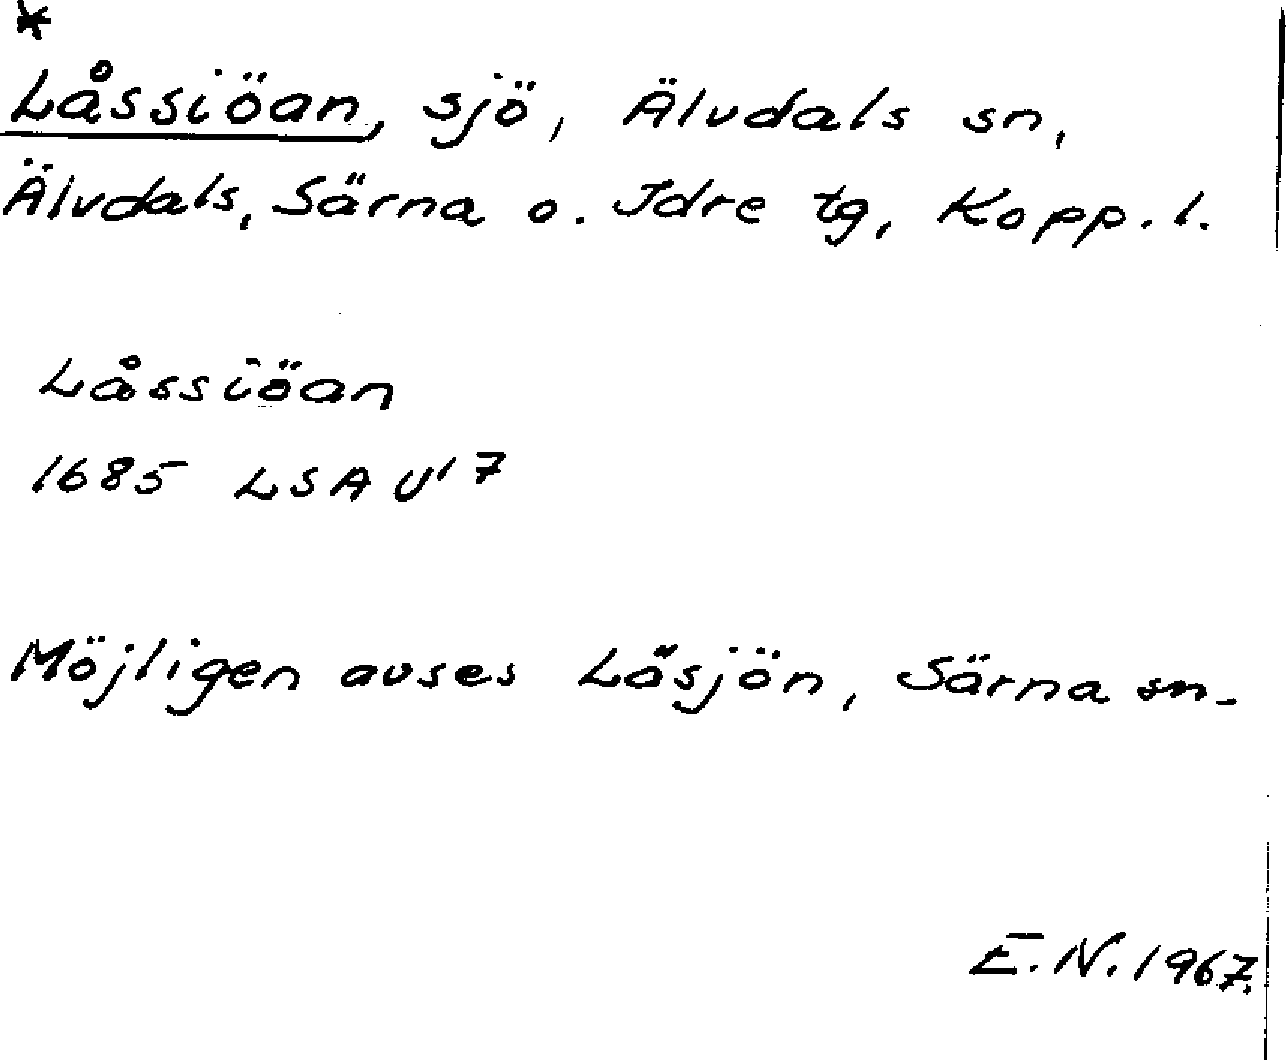 *
Låssiöan, sjö, Älvdals sn,
Älvdals, Särna o. Idre tg, Kopp. l.
Låssiöan
1685 LSA U' 7
Möjligen avses Låsjön, Särna sn.
E.N. 1967.